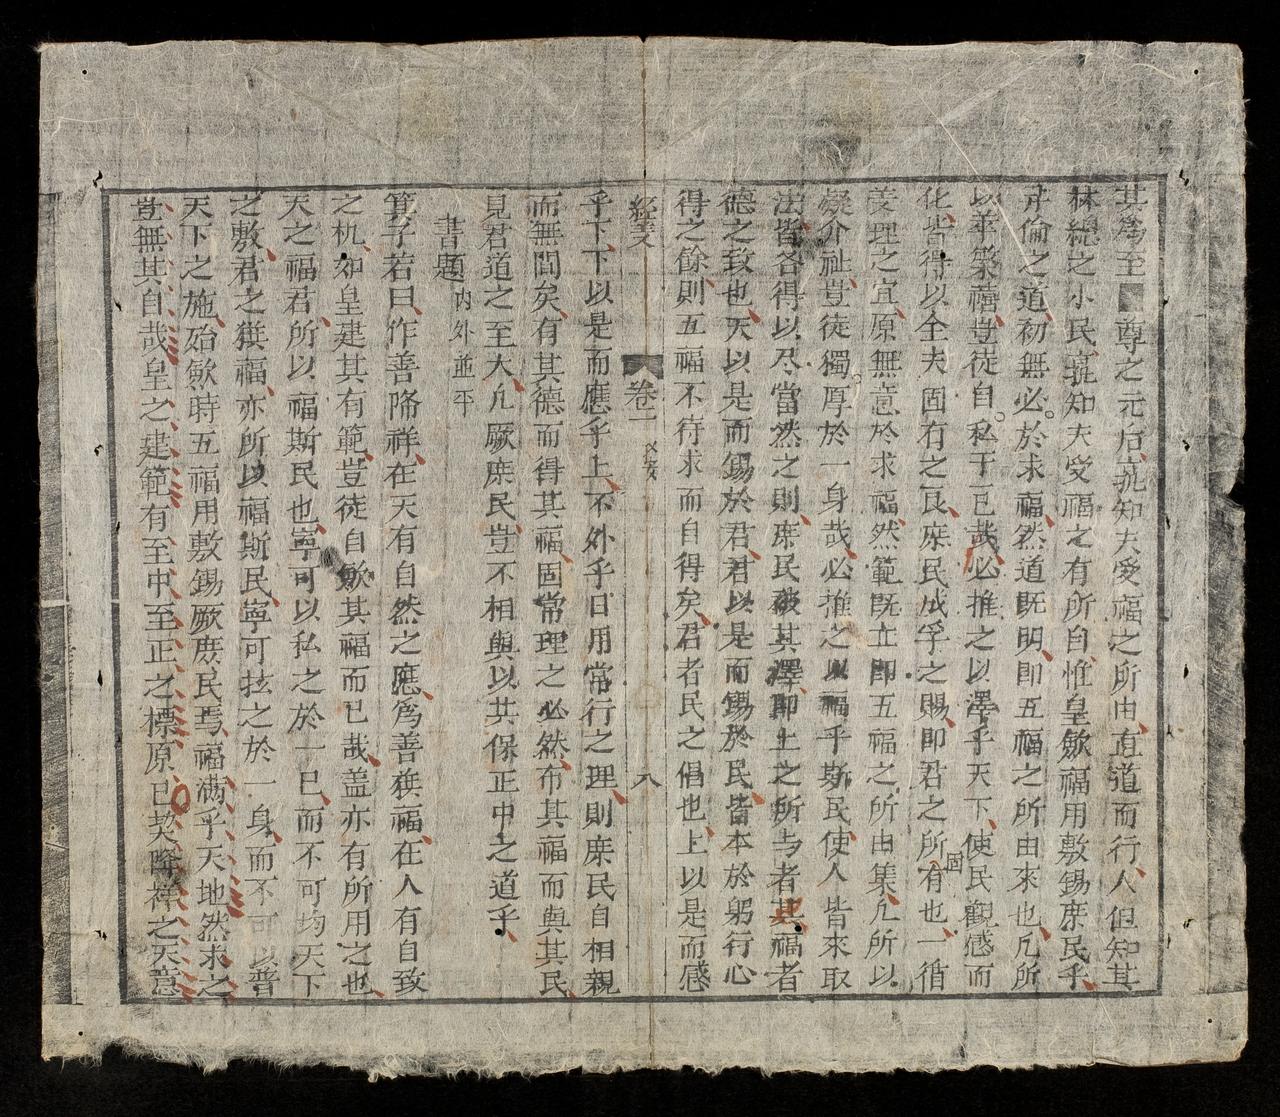 其爲至尊之元后孰知夫受福之所由直道而行人但知其
林總之小民孰知夫受福之有所自惟皇歛福用敷錫庶民乎
倫之道初無必於求福然道既明即五福之所由來也凡所
以華榮禧豈徒自私于己哉必推之以澤乎天下使民觀感而
化皆得以全夫固有之良庶民成孚之賜即君之所固有也一循
理之宜原無意於求福然範既立即五福之所由集凡所以
凝介祉豈徒獨厚於一身哉必推之以福乎斯民使人皆來取
法皆各得以尽當然之則庶民被其澤即上之所与者其福者
德之致也天以是而錫於君君以是而錫於民皆本於躬行心
得之餘則五福不待求而自得矣君者民之倡也上以是而感
經義 卷二 八
乎下下以是而應乎上不外乎日用常行之理則庶民自相親
而無間矣有其德而得其福固常理之必然布其福而與其民
見君道之至大凡厥庶民豈不相與以共保正中之道乎
書題 内外並平
箕子若曰作善降祥在天有自然之應爲善獲福在人有自致
之机如皇建其有範豈徒自歛其福而已哉盖亦有所用之也
天之福君所以福斯民也寧可以私之於一己而不可均天下
之敷君之獲福亦所以福斯民寧可拡之於一身而不可以普
天下之施殆歛時五福用敷錫厥庶民焉福滿乎天地然求之
豈無其自哉皇之建範有至中至正之標原已契降祥之天意